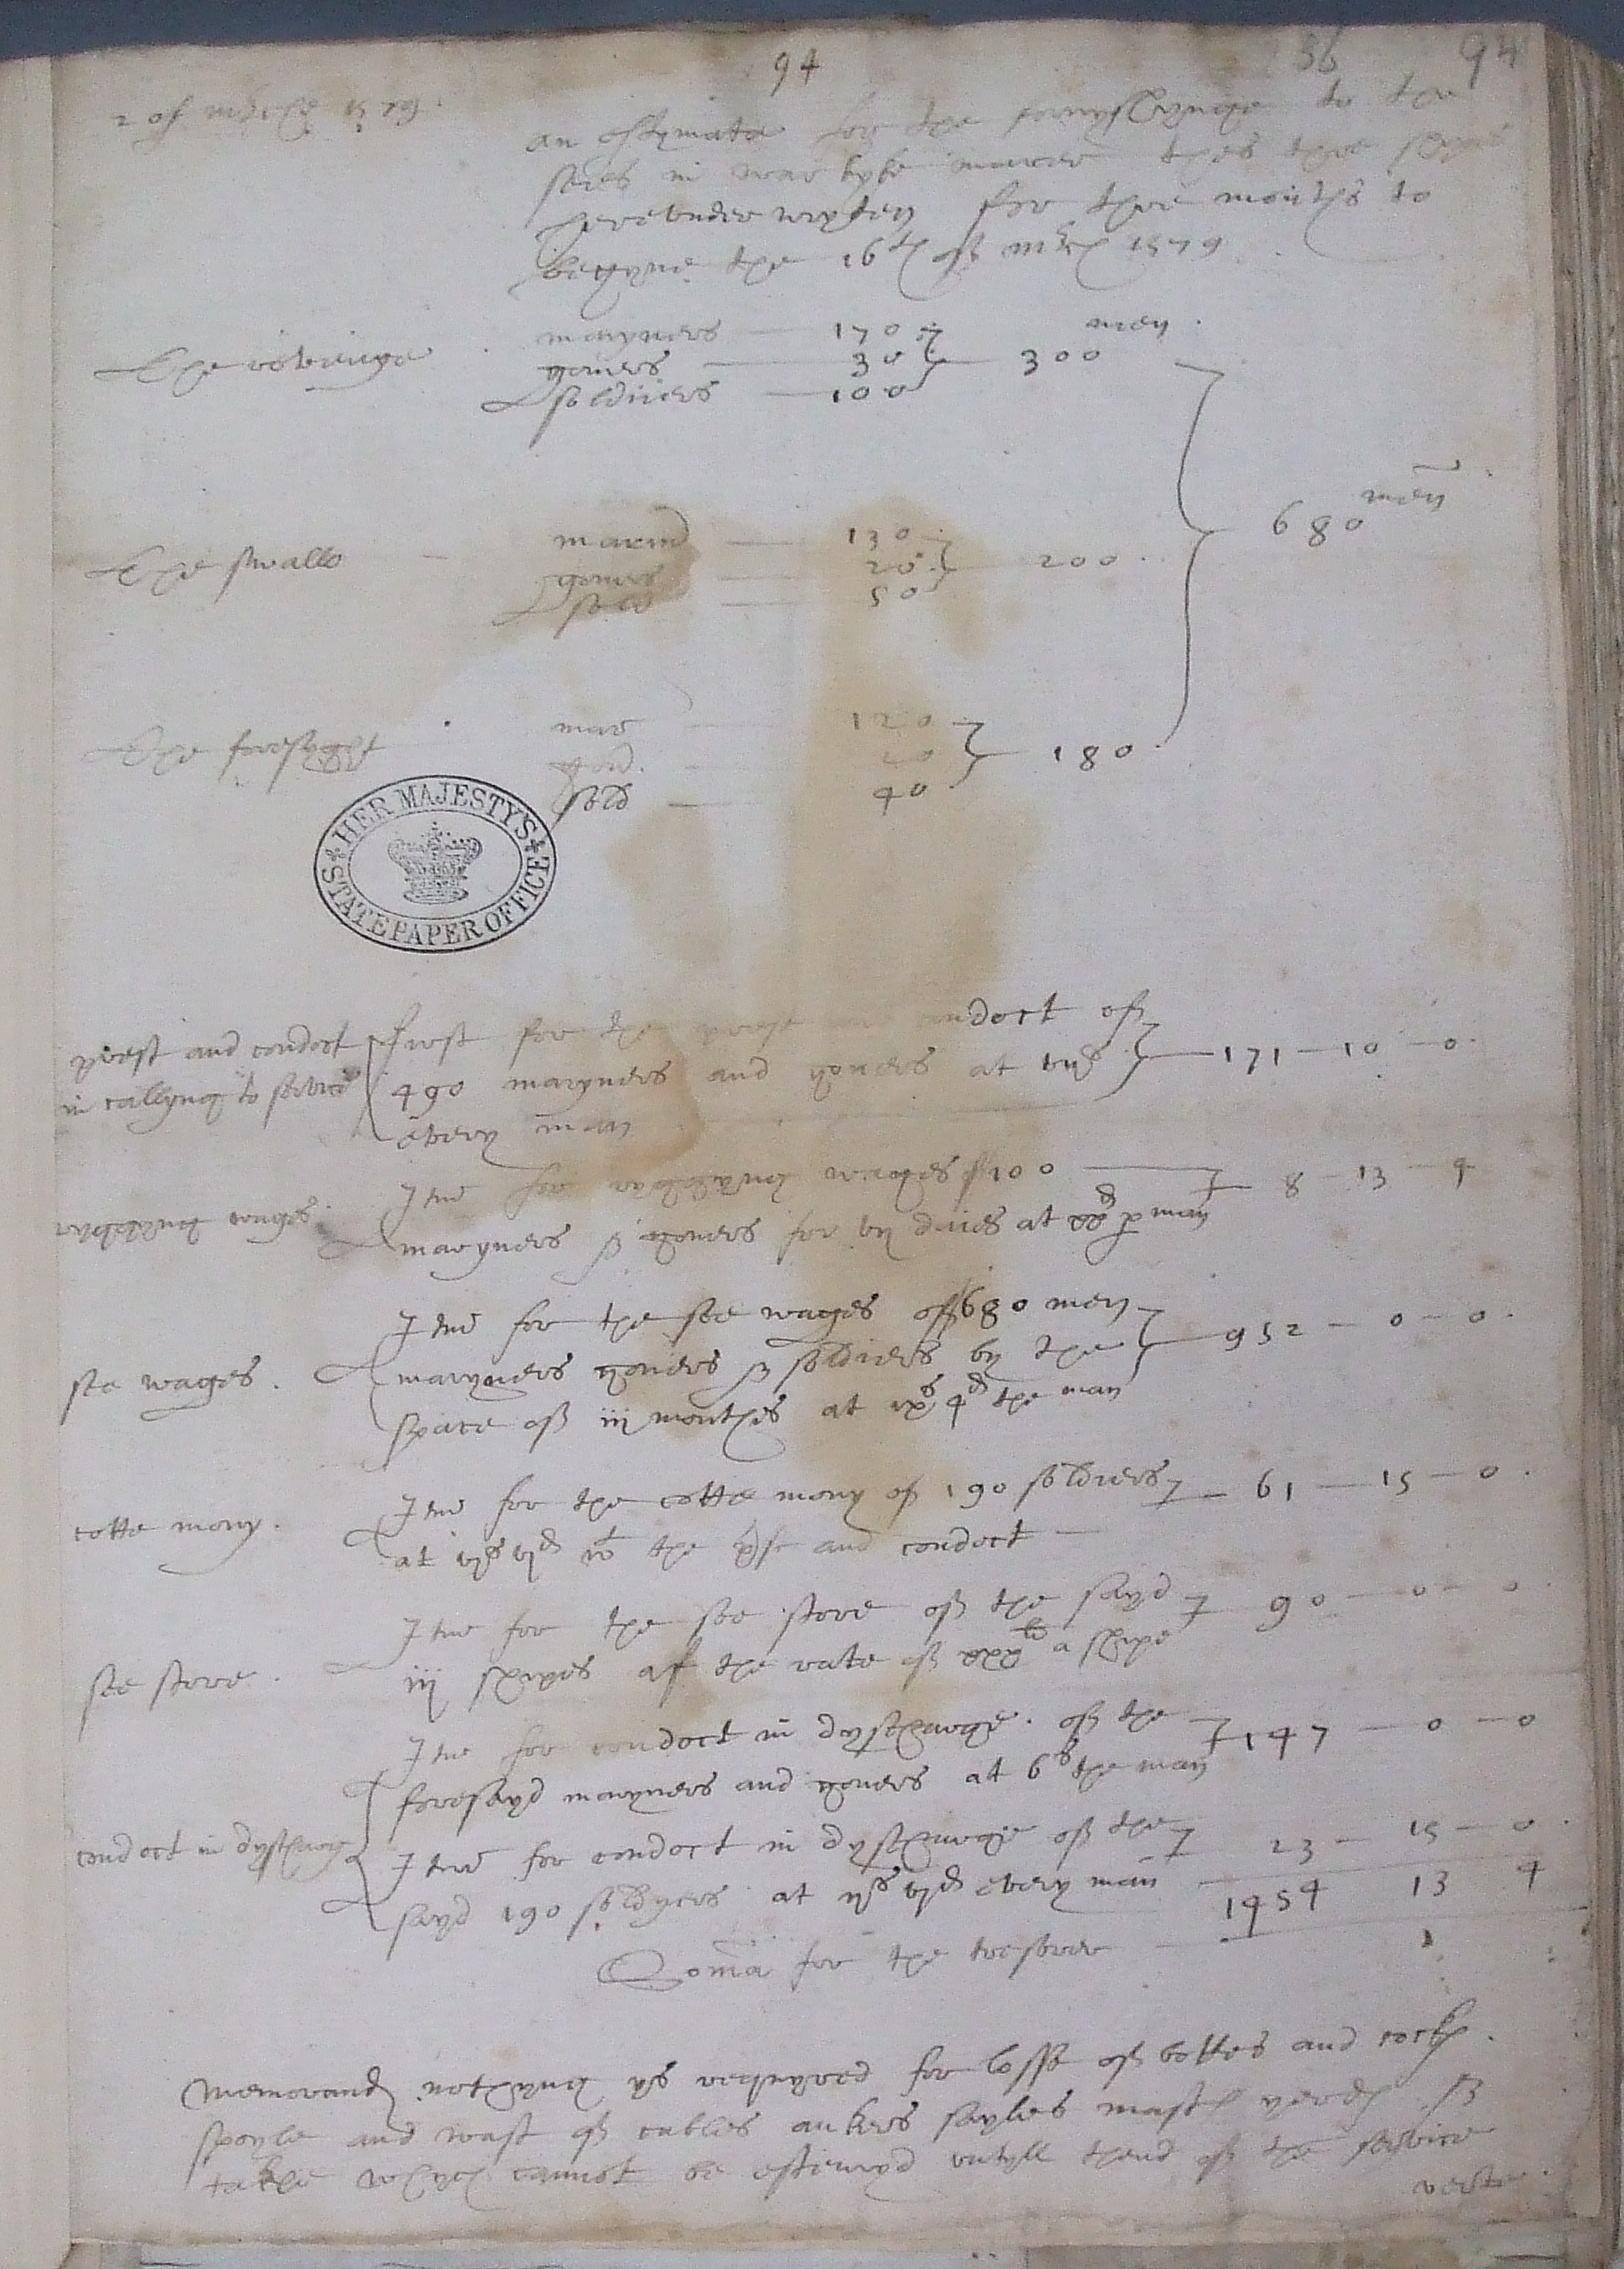 94 36 94
2 of m'che 1579
an estymate for the furnyshynge to the
sees in warlyke maner thes thre shipes
hereunder wryten for thre monthes to
begyne the 16th of m'ch 1579
The revenge
maryners — 170
goners — 30
soldiers — 100
300 men
The swallo
marin — 130
goners — 20
sold — 50
200
The foresyght
mar — 120
gon — 20
sold — 40
180
680 men
HER MAJESTY'S
STATE PAPER OFFICE
prest and condoct
in callyng to service
First for the prest and condoct of
490 maryners and goners at vijs
every man
171 — 10 — 0
ryggyng wages
Itm for ryggyng wages of 100
maryners & goners for daies at per man
8 — 13 — 4
sea wages
Itm for the see wages of 680 men
maryners goners & soldiers by the
space of iij monthes at ixs 4d the man
952 — 0 — 0
cotte mony
Itm for the cotte mony of 190 soldiers
at vjs vjd wt the p'st and condoct
61 — 15 — 0
see store
Itm for the see store of the sayd
iij shipes at the rate of xxxli a shipe
90 — 0 — 0
condoct in dyscharge
Itm for condoct in dyscharge of the
foresayd maryners and goners at 6s the man
147 — 0 — 0
Itm for condoct in dyscharge of the
sayd 190 soldyers at ijs vjd every man
23 — 15 — 0
1454 13 4
Soma for the tresorer
Memorand nothyng ys requyred for losse of bottes and cocks
spoyle and wast of cables ankers sayles masts yerds &
takle whych cannot be estemyd untyll thend of the servico
verte